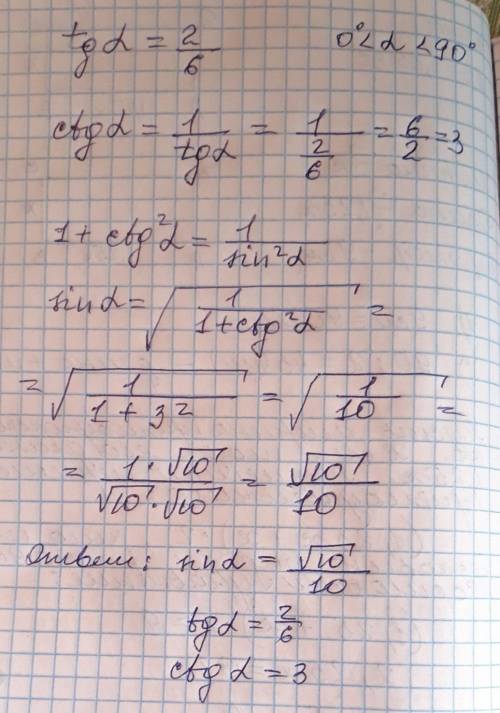 tgα = 2/6    0° < α < 90°
ctgα = 1/tgα = 1/(2/6) = 6/2 = 3
1 + ctg²α = 1/sin²α
sinα = √(1/(1+ctg²α)) =
= √(1/(1+3²)) = √(1/10) =
= (1·√10)/(√10·√10) = √10/10
Ответ: sinα = √10/10
tgα = 2/6
ctgα = 3